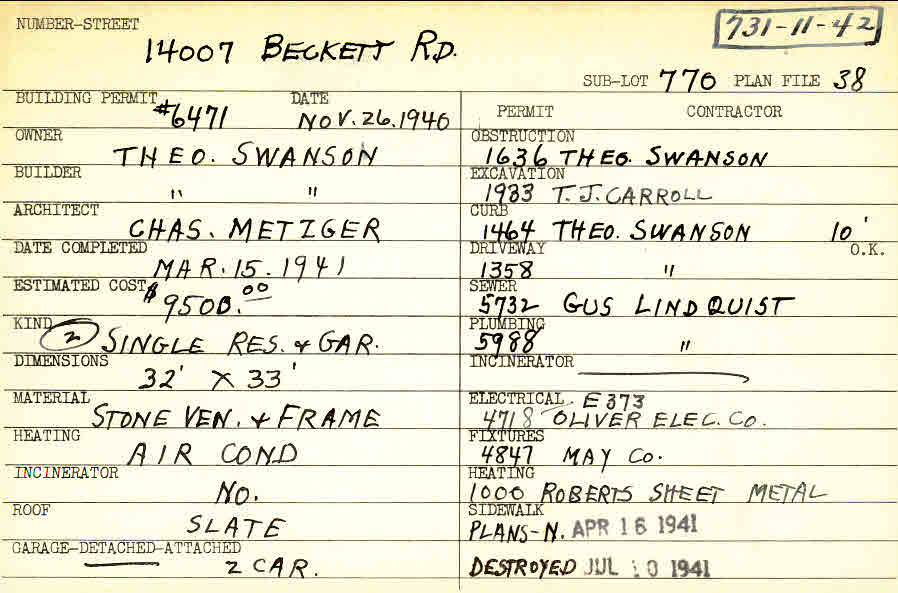 NUMBER-STREET
731-11-42
14007 BECKETT RD.
SUB-LOT 770 PLAN FILE 38
BUILDING PERMIT DATE
#6471 NOV. 26. 1940
OWNER
THEO. SWANSON
BUILDER
" "
ARCHITECT
CHAS. METZGER
DATE COMPLETED
MAR. 15. 1941
ESTIMATED COST
$9500.00
KIND
2 SINGLE RES. & GAR.
DIMENSIONS
32' X 33'
MATERIAL
STONE VEN. & FRAME
HEATING
AIR COND
INCINERATOR
NO.
ROOF
SLATE
GARAGE-DETACHED-ATTACHED
2 CAR.
PERMIT CONTRACTOR
OBSTRUCTION
1636 THEO. SWANSON
EXCAVATION
1933 T.J. CARROLL
CURB
1464 THEO. SWANSON 10'
DRIVEWAY O.K.
1358 "
SEWER
5732 GUS LINDQUIST
PLUMBING
5988 "
INCINERATOR
ELECTRICAL. E373
4718 OLIVER ELEC. CO.
FIXTURES
4847 MAY CO.
HEATING
1000 ROBERTS SHEET METAL
SIDEWALK
PLANS-N. APR 16 1941
DESTROYED JUL 10 1941